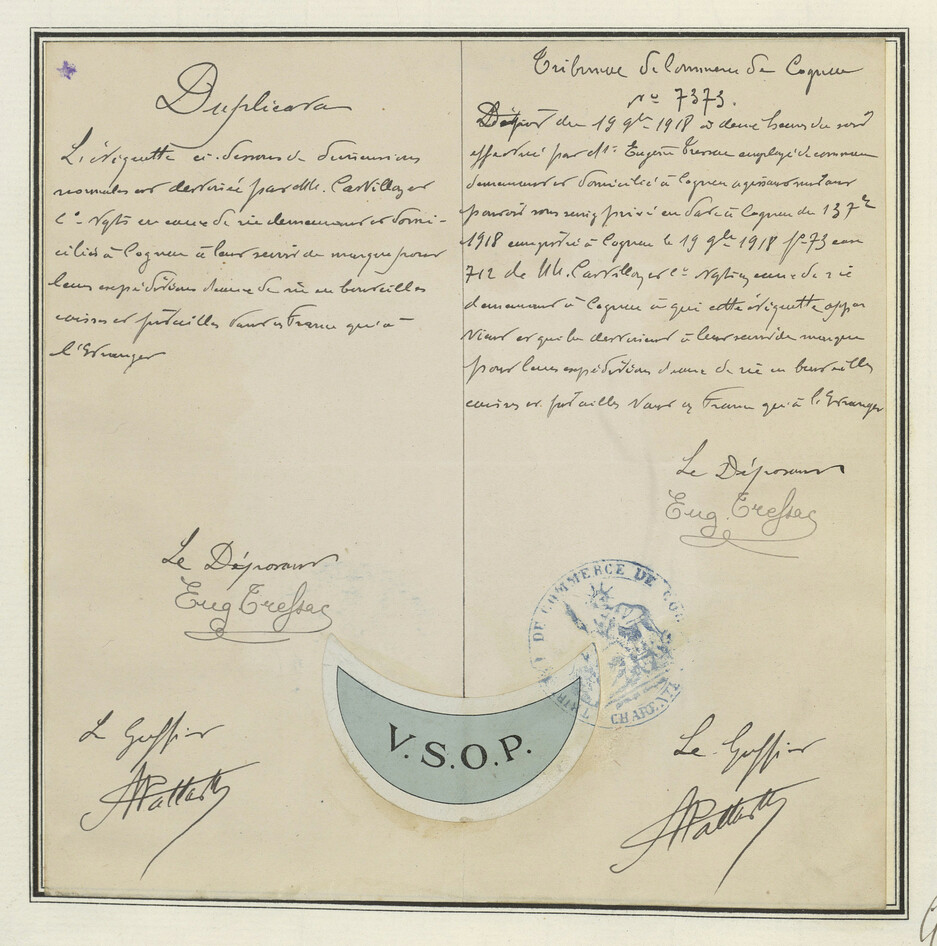 Duplicata
L'étiquette ci-dessous de dimensions
normales est destinée par MM. Castillon et
Cie Négts en eaux de vie demeurant et domi-
ciliés à Cognac à leur servir de marque pour
leurs expéditions d'eaux de vie en bouteilles
caisses et futailles tant en France qu'à
l'Etranger
Le Déposant
Eug Tressac
Le Greffier
Tribunal de Commerce de Cognac
No 7373.
Dépôt du 19 9bre 1918 à deux heures du soir
effectué par Mr. Eugène Tressac employé de commerce
demeurant et domicilié à Cognac agissant suivant
pouvoir sous seing privé en date à Cognac du 13 7bre
1918 enregistré à Cognac le 19 9bre 1918 fo 73 case
712 de MM. Castillon et Cie Négts en eaux de vie
demeurant à Cognac à qui cette étiquette appar
tient et qui la destinent à leur servir de marque
pour leurs expéditions d'eaux de vie en bouteilles
caisses et futailles tant en France qu'à l'Etranger
Le Déposant
Eug. Tressac
DE COMMERCE DE CO
CHARENTE
Le Greffier
V.S.O.P.